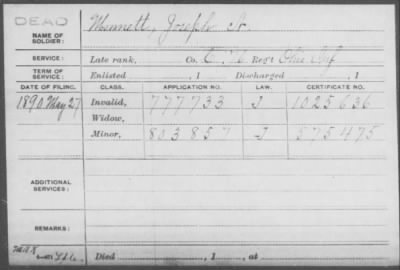 DEAD
NAME OF SOLDIER: Mennett, Joseph A.
SERVICE: Late rank, Co. E. 76 Reg't Ohio Inf
TERM OF SERVICE: Enlisted , 1 Discharged , 1
DATE OF FILING. CLASS. APPLICATION NO. LAW. CERTIFICATE NO.
1890 May 27 Invalid, 777733 J 1025636
Widow,
Minor, 803857 J 575475
ADDITIONAL SERVICES:
REMARKS:
Died , 1 , at